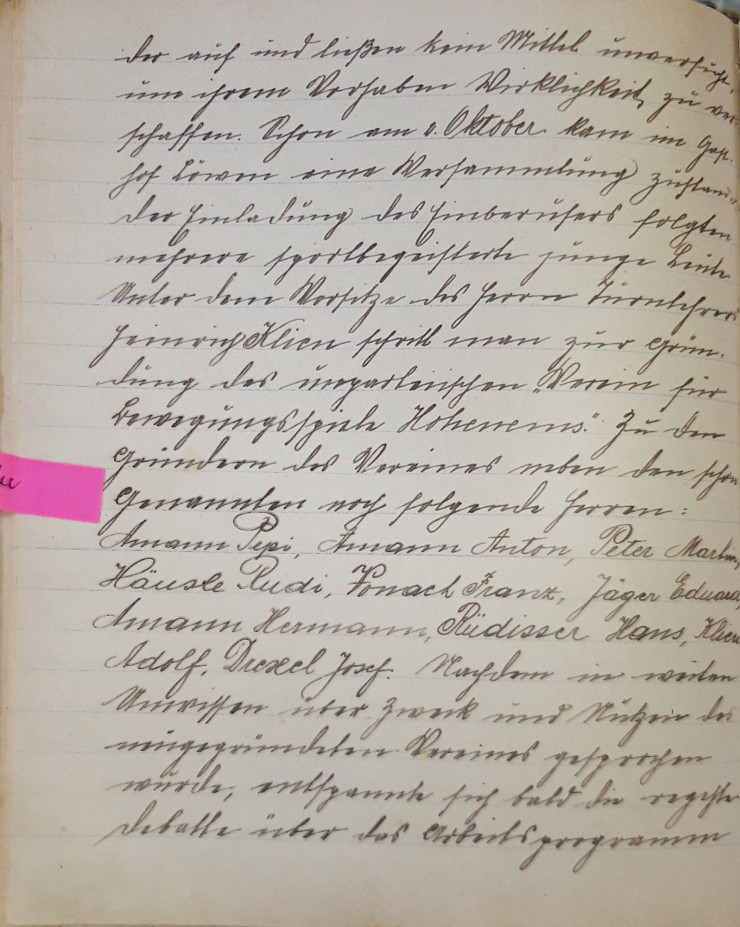 der auf und ließen kein Mittel unversucht,
um ihrem Vorhaben Wirklichkeit zu ver-
schaffen. Schon am 2. Oktober kam im Gast-
hof Löwen eine Versammlung zustande.
Der Einladung des Einberufers folgten
mehrere sportbegeisterte junge Leute.
Unter dem Vorsitze des Herrn Turnlehrers
Heinrich Klien schritt man zur Grün-
dung des unparteiischen „Verein für
Bewegungsspiele Hohenems." Zu den
Gründern des Vereines neben den schon
Genannten noch folgende Herren:
Amann Pepi, Amann Anton, Peter Martin,
Häusle Rudi, Fonach Franz, Jäger Eduard,
Amann Hermann, Rüdisser Hans, Klien
Adolf, Drexel Josef. Nachdem in weiten
Umrissen über Zweck und Nutzen des
neugegründeten Vereines gesprochen
wurde, entspannte sich bald die regste
Debatte über das Arbeitsprogramm